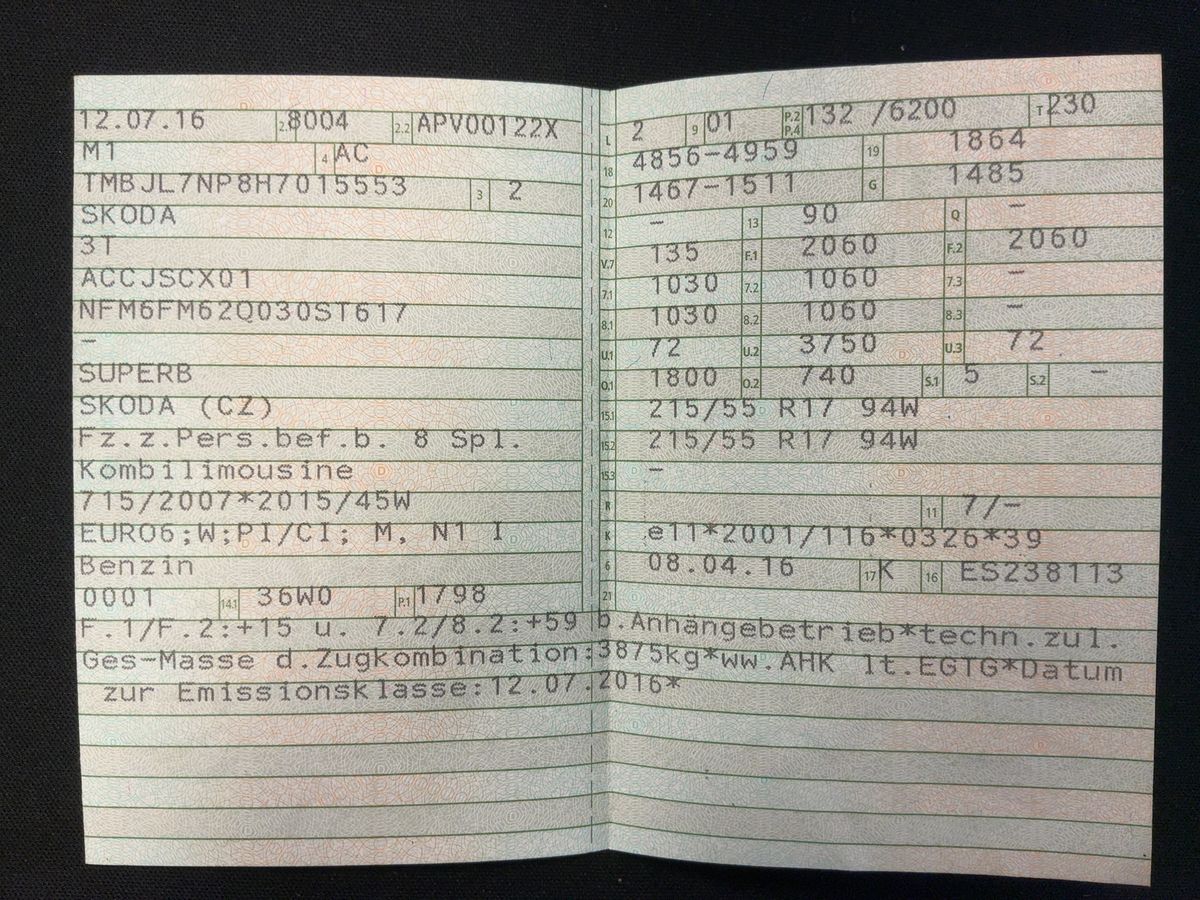 12.07.16 2.1 8004 2.2 APV00122X
M1 4 AC
TMBJL7NP8H7015553 3 2
SKODA
3T
ACCJSCX01
NFM6FM62Q030ST617
–
SUPERB
SKODA (CZ)
Fz.z.Pers.bef.b. 8 Spl.
Kombilimousine
715/2007*2015/45W
EURO6;W;PI/CI; M, N1 I
Benzin
0001 14.1 36W0 P.1 1798
L 2 9 01 P.2 P.4 132 /6200 T 230
18 4856-4959 19 1864
20 1467-1511 G 1485
12 – 13 90 Q –
V.7 135 F.1 2060 F.2 2060
7.1 1030 7.2 1060 7.3 –
8.1 1030 8.2 1060 8.3 –
U.1 72 U.2 3750 U.3 72
O.1 1800 O.2 740 S.1 5 S.2 –
15.1 215/55 R17 94W
15.2 215/55 R17 94W
15.3 –
R 11 7/–
K e11*2001/116*0326*39
6 08.04.16 17 K 16 ES238113
21
F.1/F.2:+15 u. 7.2/8.2:+59 b.Anhängebetrieb*techn.zul.
Ges-Masse d.Zugkombination:3875kg*ww.AHK lt.EGTG*Datum
zur Emissionsklasse:12.07.2016*